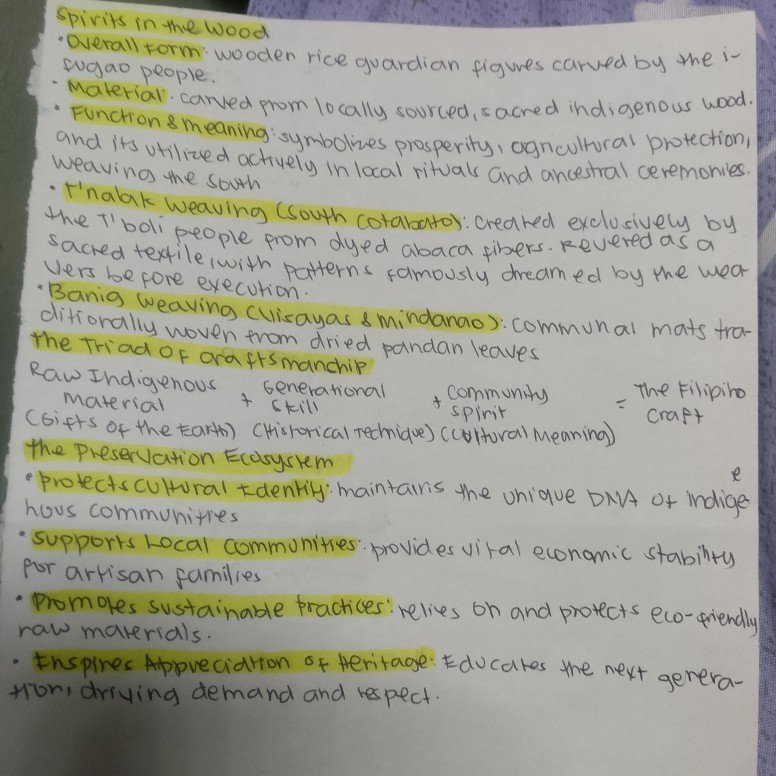 Spirits in the Wood
• Overall Form: wooden rice guardian figures carved by the i-
fugao people.
• Material: carved from locally sourced, sacred indigenous wood.
• Function & meaning: symbolizes prosperity, agricultural protection,
and its utilized actively in local rituals and ancestral ceremonies.
Weaving the South
• T'nalak Weaving (South Cotabato): Created exclusively by
the T'boli people from dyed abaca fibers. Revered as a
sacred textile, with patterns famously dreamed by the wea
vers before execution.
• Banig Weaving (Visayas & Mindanao): communal mats tra-
ditionally woven from dried pandan leaves
The Triad of Craftsmanchip
Raw Indigenous Material + Generational Skill + Community Spirit = The Filipino Craft
(Gifts of the Earth) (Historical Technique) (Cultural Meaning)
The Preservation Ecosystem
• Protects Cultural Identity: maintains the unique DNA of indige
nous communities
• Supports Local Communities: provides vital economic stability
for artisan families
• Promotes Sustainable Practices: relies on and protects eco-friendly
raw materials.
• Enspires Appreciation of Heritage: Educates the next genera-
tion, driving demand and respect.